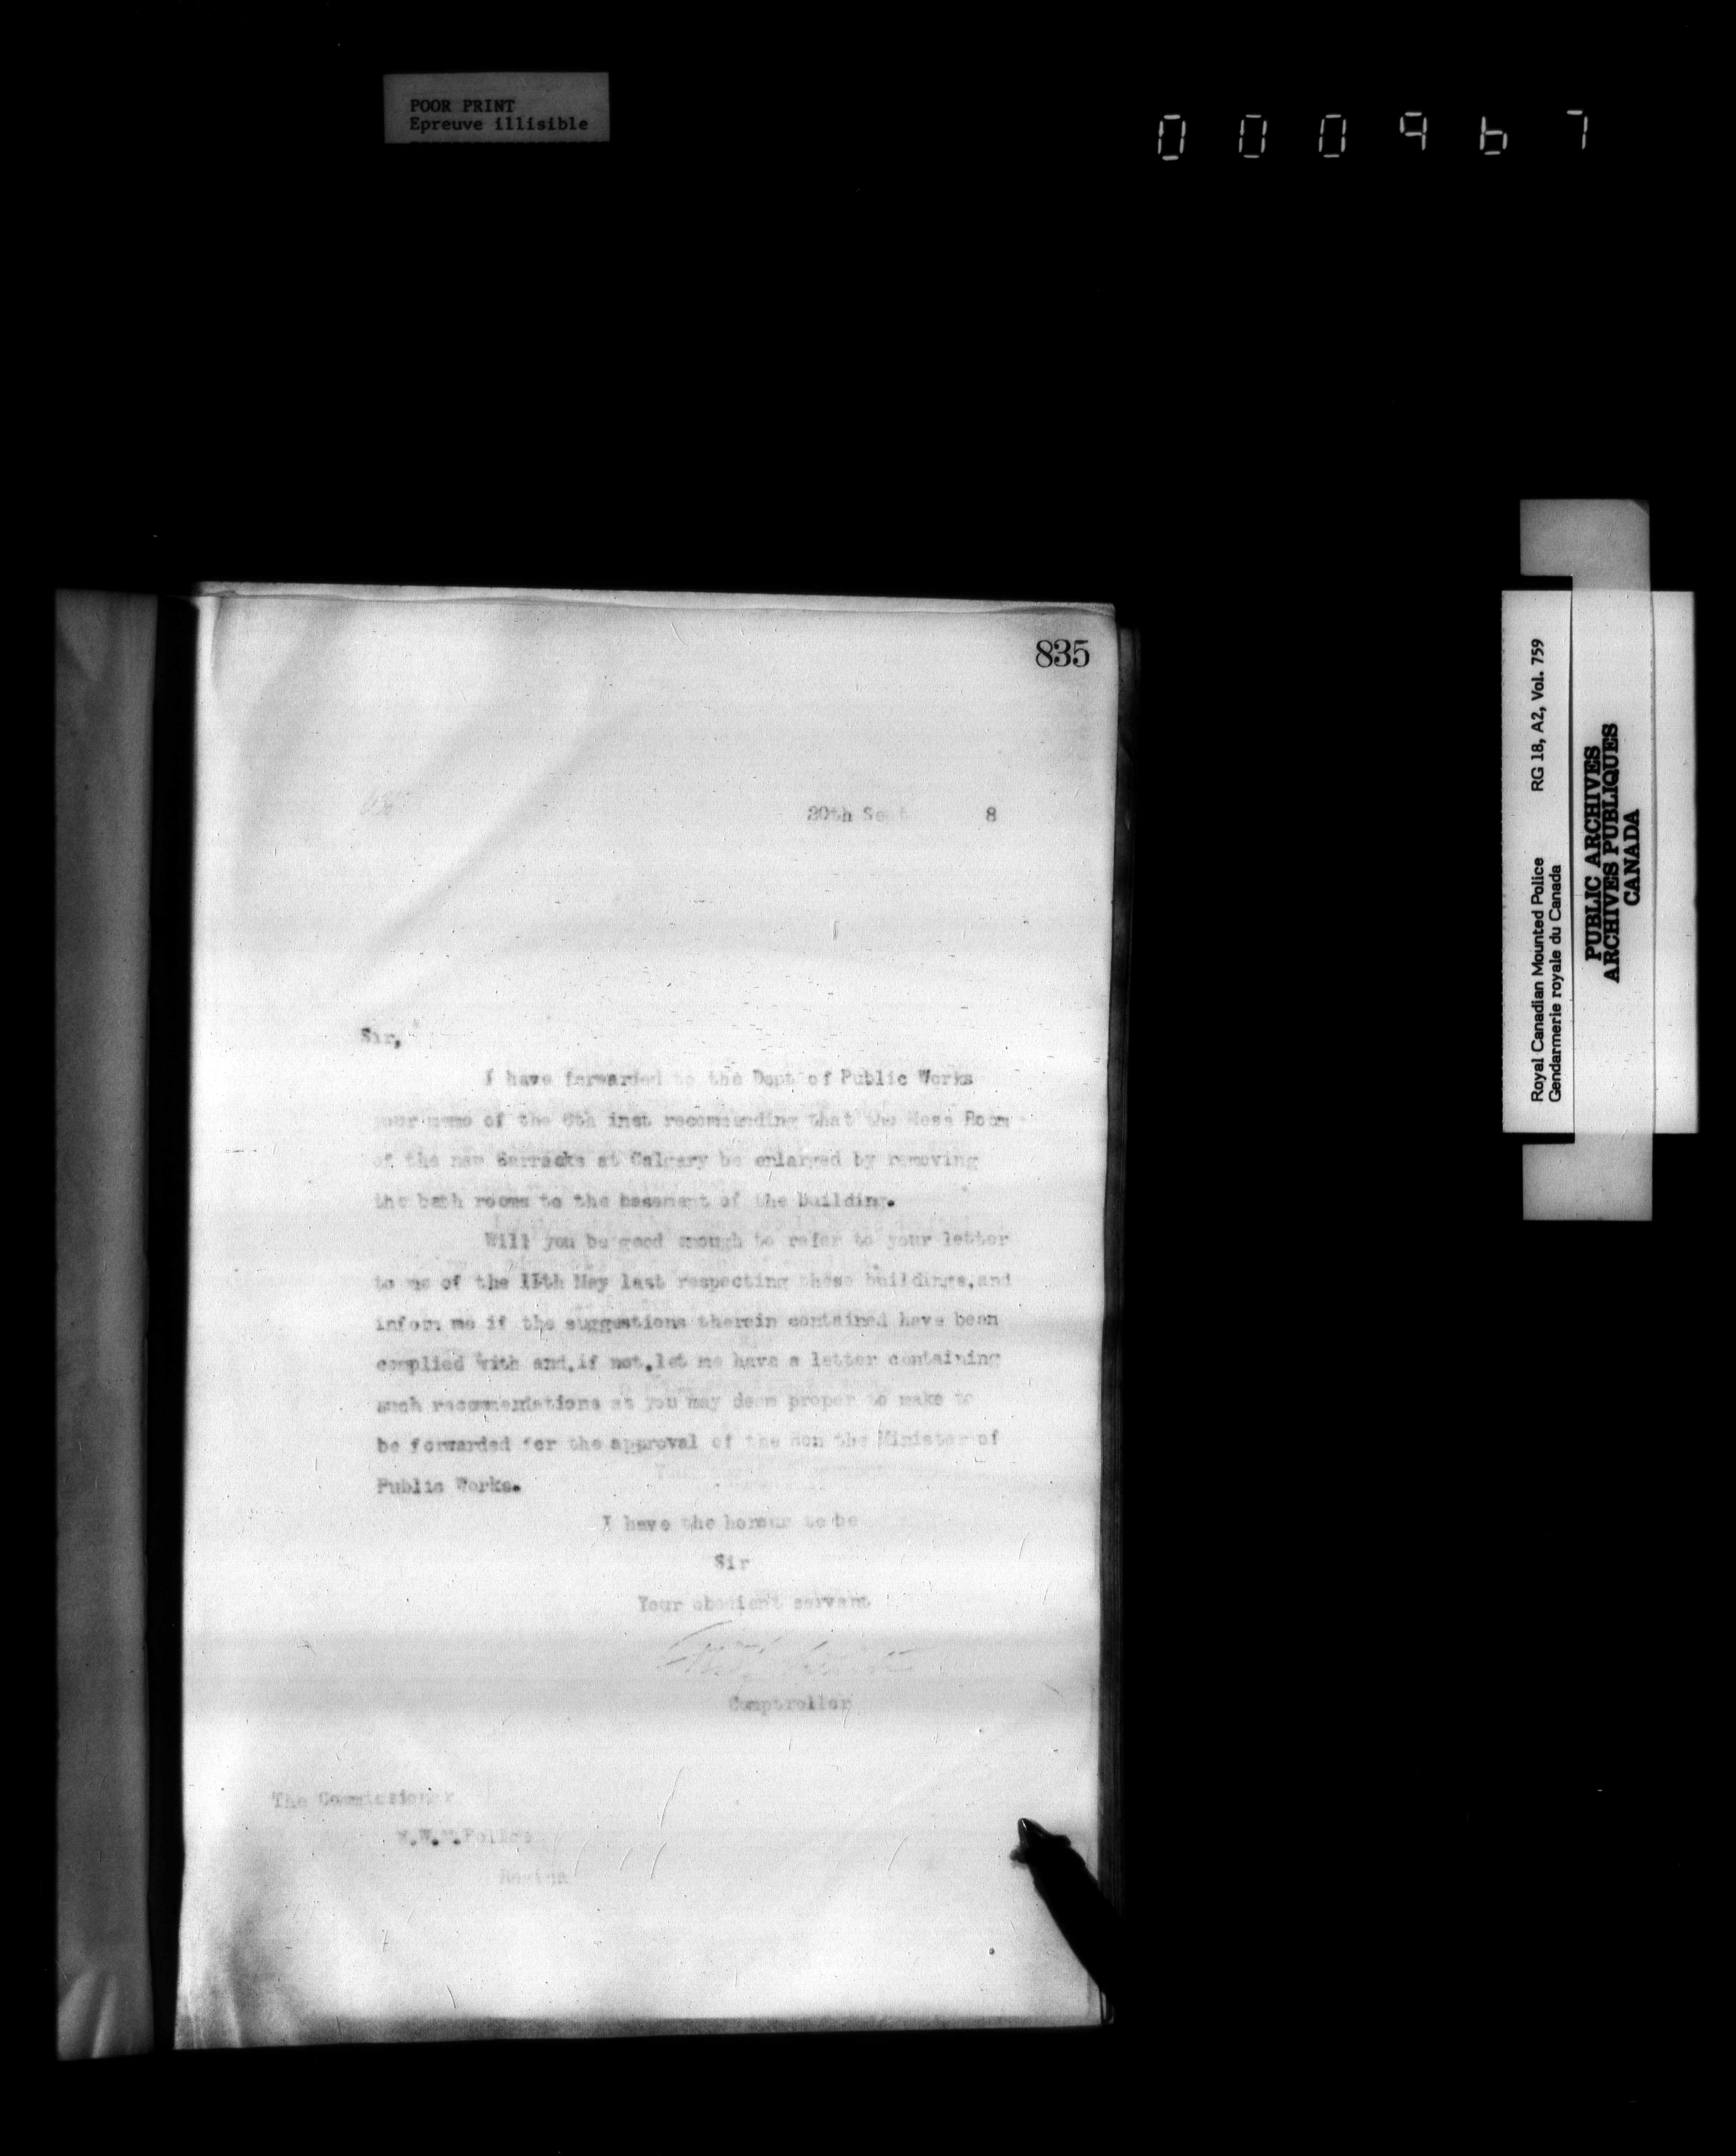 POOR PRINT
Epreuve illisible
000967
835
20th Sept 8
Sir,
I have forwarded to the Dept of Public Works
your memo of the 6th inst recommending that the Mess Room
of the new Barracks at Calgary be enlarged by removing
the bath rooms to the basement of the building.
Will you be good enough to refer to your letter
to me of the 11th May last respecting these buildings,and
inform me if the suggestions therein contained have been
complied with and,if not,let me have a letter containing
such recommendations as you may deem proper to make to
be forwarded for the approval of the Hon the Minister of
Public Works.
I have the honour to be
Sir
Your obedient servant
Comptroller
The Commissioner
N.W.M.Police
Regina
Royal Canadian Mounted Police RG 18, A2, Vol. 759
Gendarmerie royale du Canada
PUBLIC ARCHIVES
ARCHIVES PUBLIQUES
CANADA